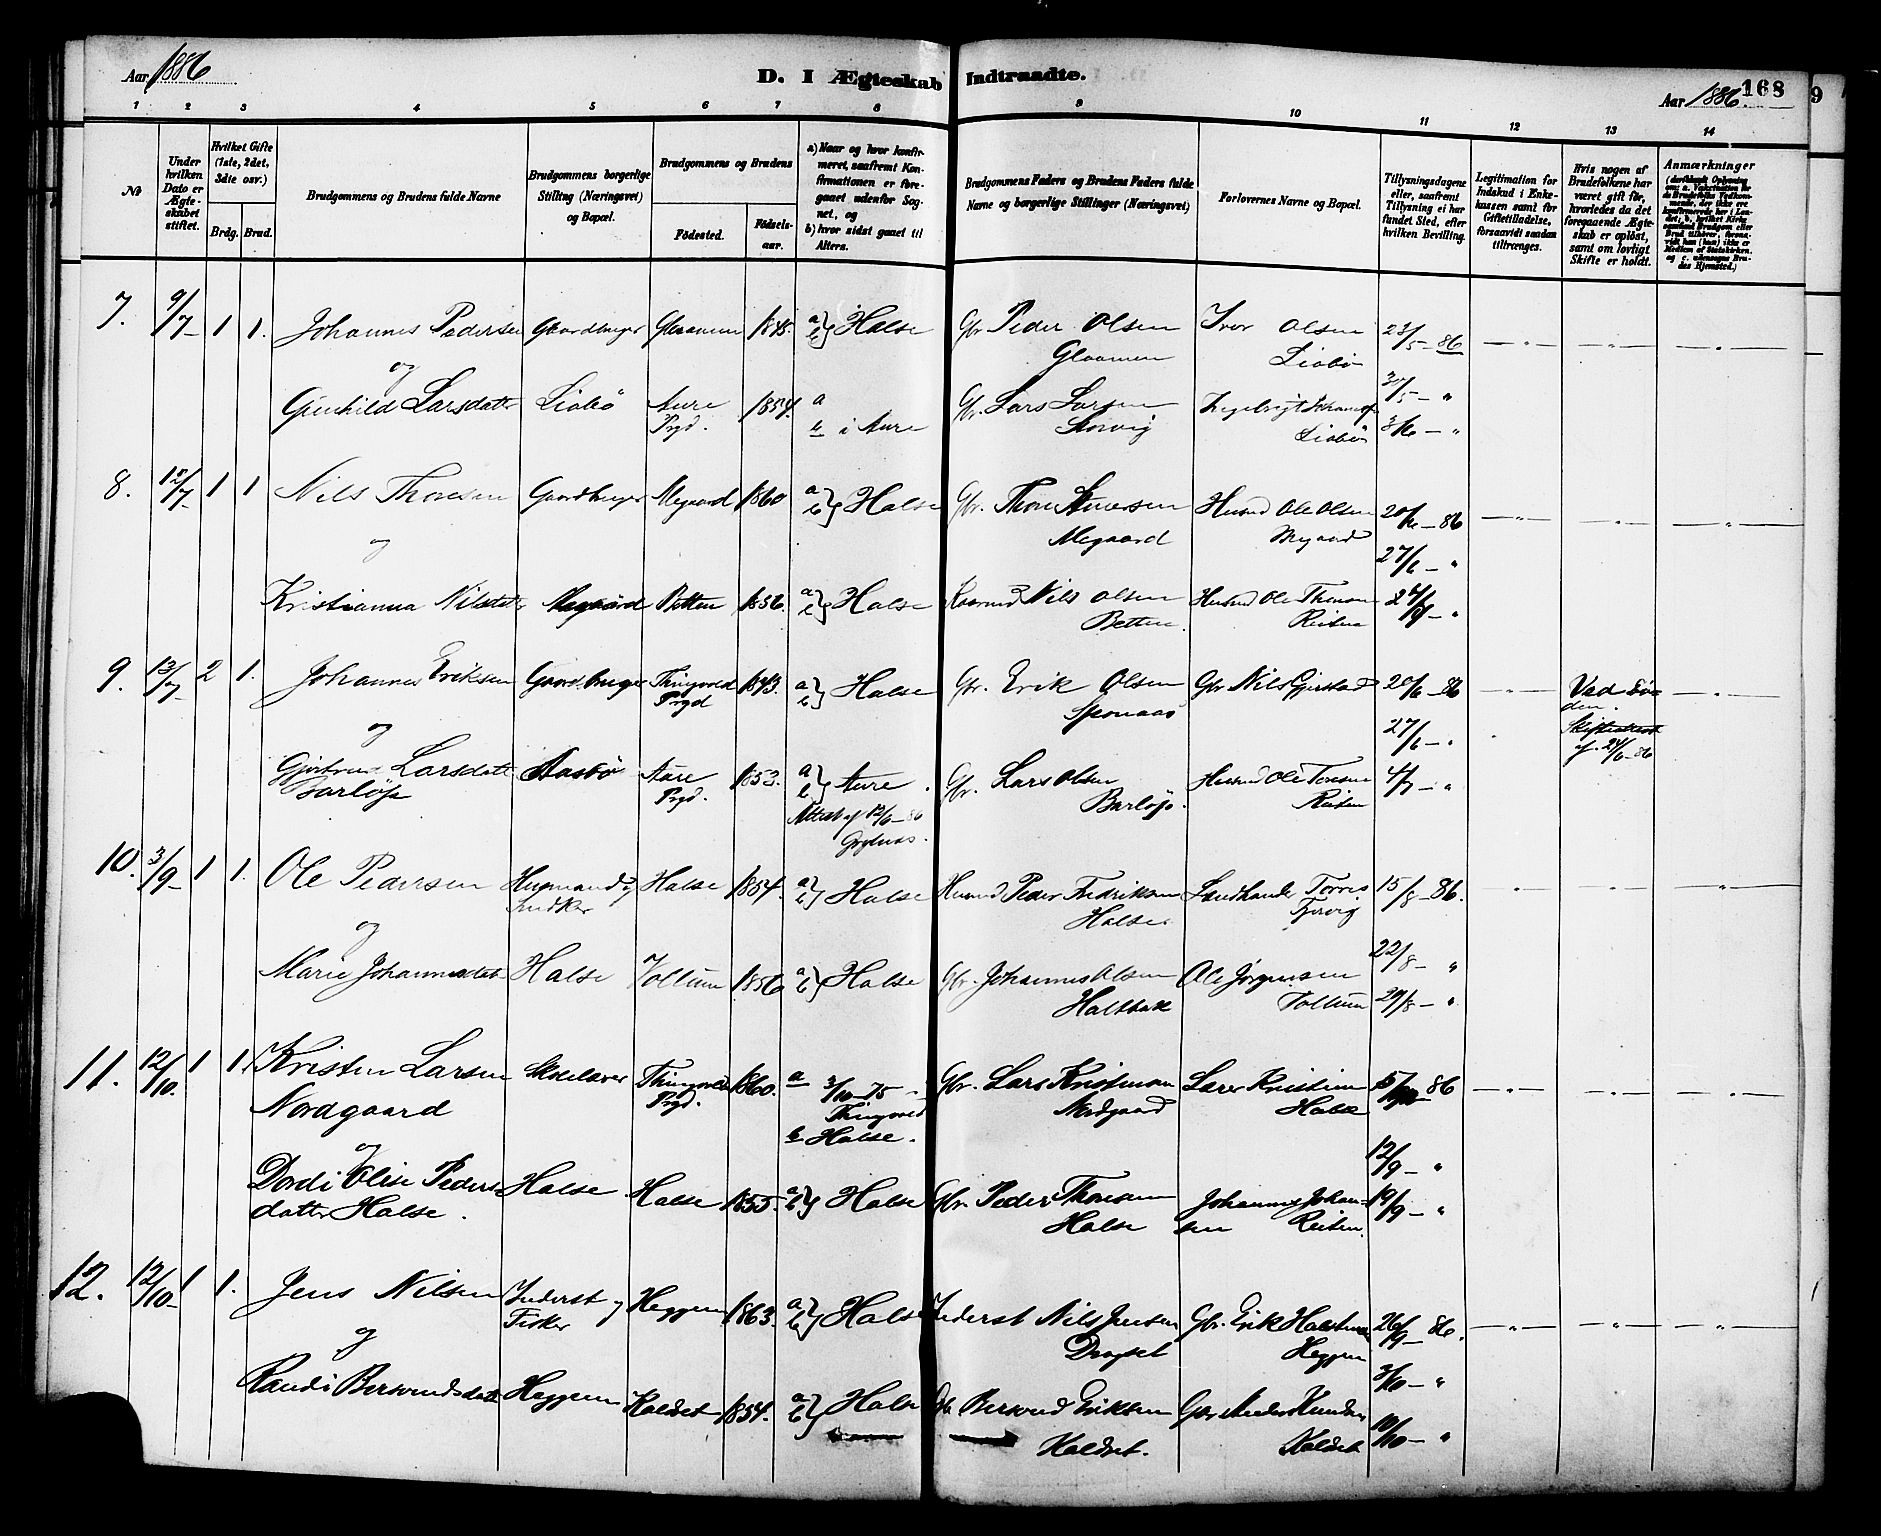 Aar 1886
D. I Ægteskab Indtraadte.
Aar 1886.
168
9
1 2 3 4 5 6 7 8 9 10 11 12 13 14
№
Under hvilken Dato er Ægteskabet stiftet.
Hvilket Gifte (1ste, 2det, 3die osv.)
Brdg. Brud.
Brudgommens og Brudens fulde Navne
Brudgommens borgerlige Stilling (Næringsvei) og Bopæl.
Brudgommens og Brudens
Fødested.
Fødselsaar.
a) Naar og hvor konfirmeret, saafremt Konfirmationen er foregaaet udenfor Sognet, og
b) hvor sidst gaaet til Alters.
Brudgommens Faders og Brudens Faders fulde Navne og borgerlige Stillinger (Næringsvei)
Forlovernes Navne og Bopæl.
Tillysningsdagene eller, saafremt Tillysning ei har fundet Sted, efter hvilken Bevilling.
Legitimation for Indskud i Enkekassen samt for Giftetilladelse, forsaavidt saadan tiltrænges.
Hvis nogen af Brudefolkene har været gift før, hvorledes da det foregaaende Ægteskab er opløst, samt om lovligt Skifte er holdt.
Anmærkninger
7. 9/7 1 1. Johannes Pedersen Gaardbruger Glaamen 1845. a b } Halse Gbr. Peder Olsen Ivor Olsen 23/5 - 86
og Glaamen Liabø
Gunhild Larsdatter Liabø Aure 1854. a Gbr. Lars Larsen 30/5 - "
Prgd. b i Aure Storvig Liabø 3/6 - "
8. 12/7 1 1 Nils Thoresen Gaardbruger Megaard 1860 a b } Halse Gbr. Thore Husmd Ole Olsen 20/6 - 86
og Megaard Megaard 27/6 - "
Kristianna Nilsdatter Megaard Betten 1856. a b } Halse Nils Olsen Husmd Ole Thoresen
Betten. Reiten
9. 13/7 2 1. Johannes Eriksen Gaardbruger Thingvold 1843. a b } Halse Gbr. Erik Olsen Gbr Nils Gjerstad 20/6 - 86 Ved Døden.
og Prgd 27/6 - " Skifteattest af 24/6-86
Gjertrud Larsdatter Aasbø Aure 1853. a b } Aure. Gbr. Lars Olsen Husmd Ole Toresen 4/7 - "
Barløse Prgd. Attest af 12/6-86 Barløse. Reiten
10. 3/9 1 1. Ole Pedersen Husmand og Halse 1854. a b } Halse Husmd Peder Fredriksen Landhandler Torris 15/8 - 86.
Snedker Halse
og
Marie Johannesdat Halse 1856 a b } Halse Gbr. Johannes Olsen Ole Jørgensen 22/8 - "
29/8 - "
11. 12/10. 1 1. Kristen Larsen Skolelærer Thingvold 1860. a 3/10-75 Gbr. Lars Lærer Kristian 86
Nordgaard Prgd. Thingvold Nordgaard Halse
og b Halse. 12/9 - "
Dordi Olise Peders Halse Halse 1855. a b } Halse Gbr. Peder Thoresen Johannes Johan- 19/9 - "
datter Halse. Halse sen Reiten.
12. 12/10 1 1. Jens Nilsen Inderst og Heggem 1863. a b } Halse Inderst Nils Jensen Gbr. Erik Halstensen 26/9 - 86.
og Fisker Drogset Heggem 3/10 - "
Randi Bersvendsdatter Heggem Haldset 1854. a b } Halse Gbr Bersvend Eriksen Gbr Knudsen 10/10 - "
Haldset. Haldset